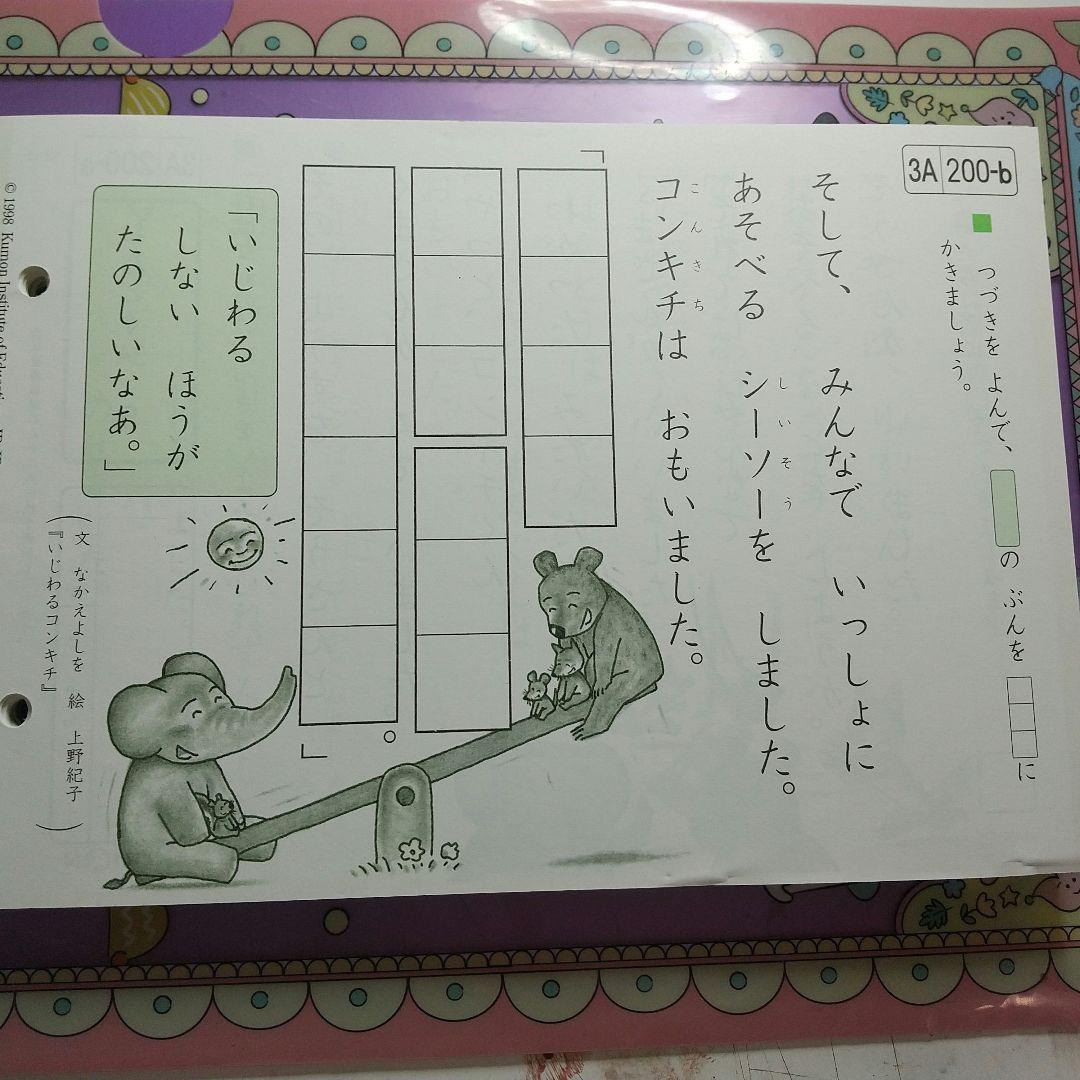 3A 200-b
つづきを よんで、 の ぶんを に
かきましょう。
そして、 みんなで いっしょに
あそべる シーソーを しました。
しいそう
コンキチは おもいました。
こんきち
「
」
。
「いじわる
しない ほうが
たのしいなあ。」
(文 なかえよしを 絵 上野紀子)
『いじわるコンキチ』
© 1998 Kumon Institute of